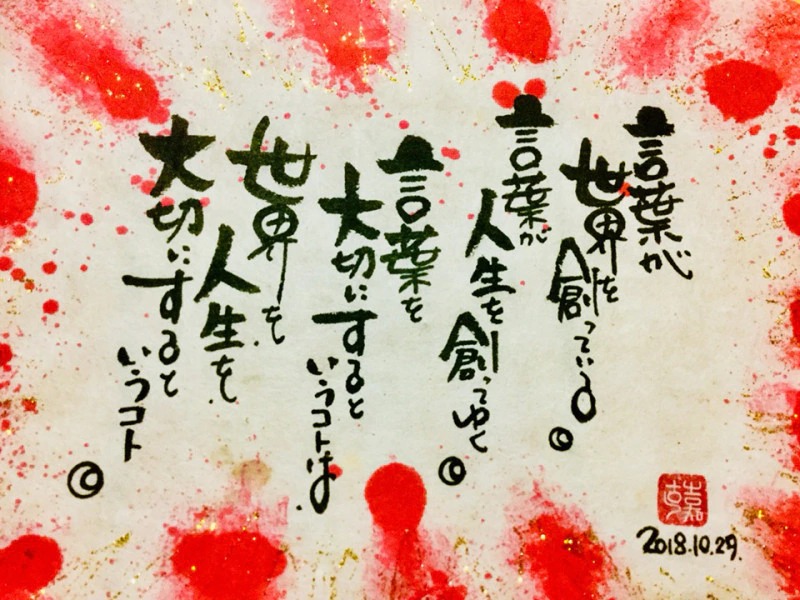 言葉が
世界を創っている。
言葉が
人生を創ってゆく。
言葉を
大切にすると
いうコトは
世界を
人生を
大切にすると
いうコト。
2018.10.29.